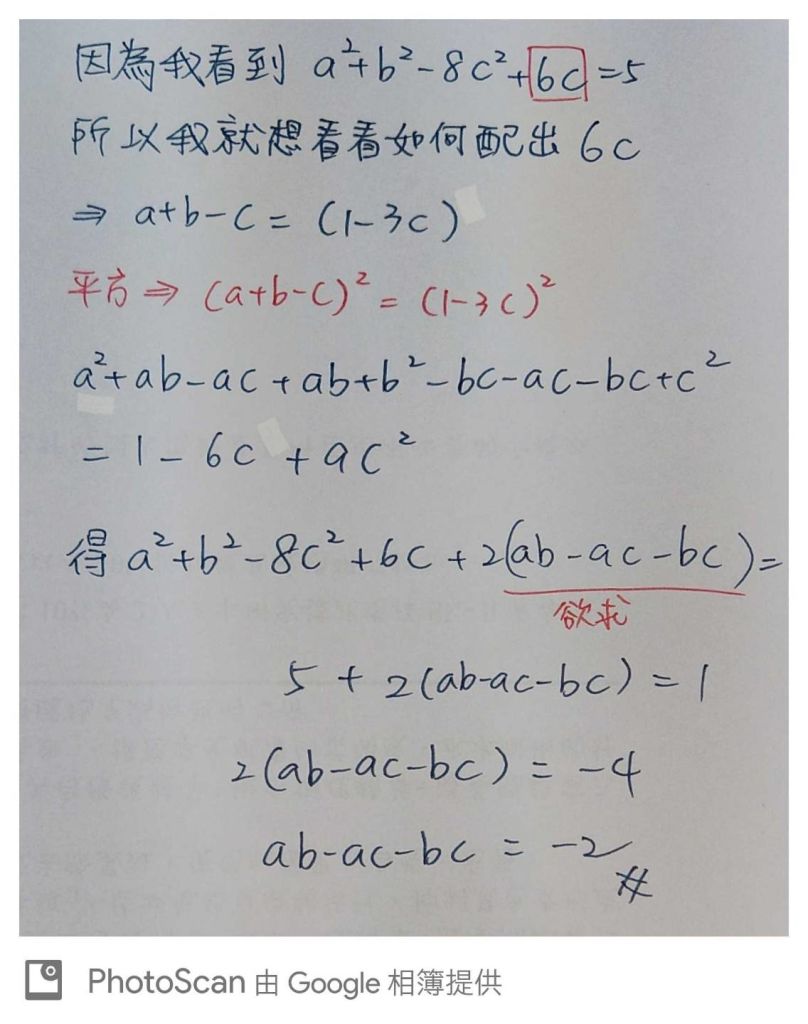 因為我看到 a²+b²-8c²+6c=5
所以我就想看看如何配出 6c
⇒ a+b-c = (1-3c)
平方 ⇒ (a+b-c)² = (1-3c)²
a²+ab-ac+ab+b²-bc-ac-bc+c²
= 1-6c+9c²
得 a²+b²-8c²+6c+2(ab-ac-bc)=
欲求
5+2(ab-ac-bc)=1
2(ab-ac-bc)=-4
ab-ac-bc=-2 #
PhotoScan 由 Google 相簿提供